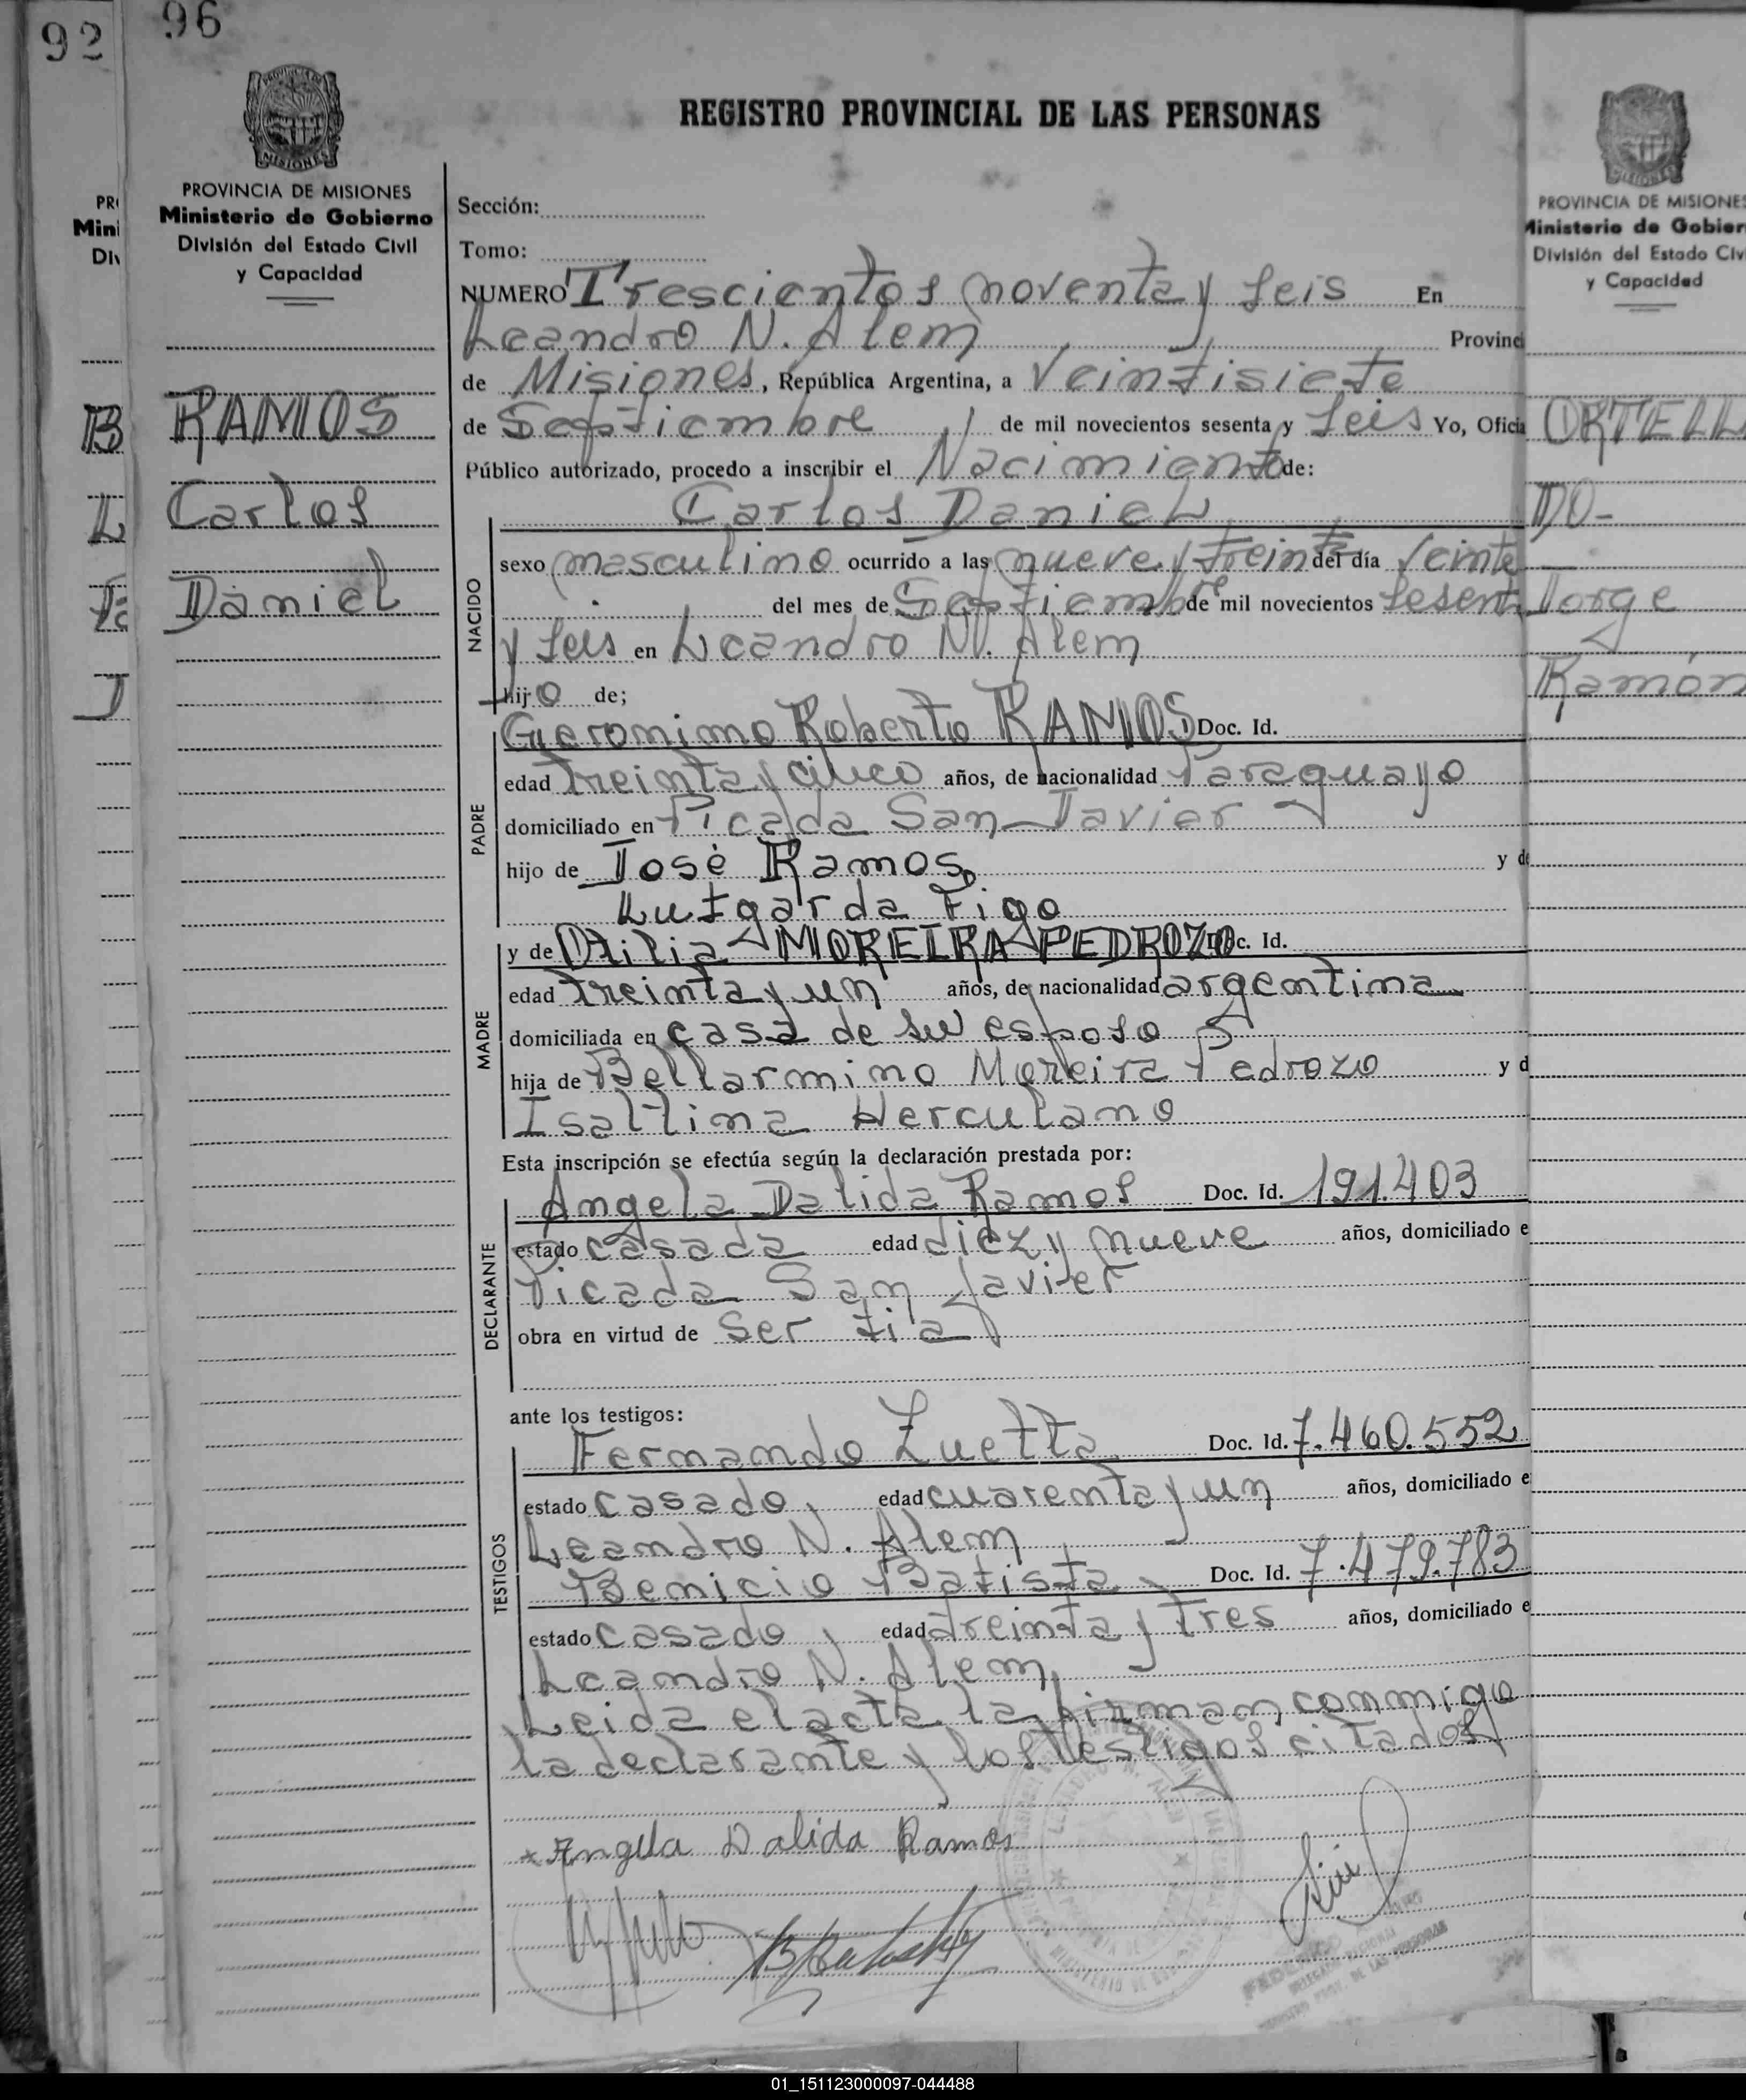 92
96
REGISTRO PROVINCIAL DE LAS PERSONAS
PROVINCIA DE MISIONES
Ministerio de Gobierno
División del Estado Civil
y Capacidad
RAMOS
Carlos
Daniel
Sección:
Tomo:
NUMERO Trescientos noventa y seis En
Leandro N. Alem Provinci
de Misiones, República Argentina, a Veintisiete
de Septiembre de mil novecientos sesenta y seis Yo, Oficia
Público autorizado, procedo a inscribir el Nacimiento de:
Carlos Daniel
NACIDO
sexo masculino ocurrido a las nueve y treinta del día veinte
del mes de Septiembre de mil novecientos sesenta
y seis en Leandro N. Alem
hijo de;
PADRE
Geronimo Roberto RAMOS Doc. Id.
edad treinta y cinco años, de nacionalidad Paraguayo
domiciliado en Picada San Javier
hijo de José Ramos y de
Lutgarda Figo
MADRE
y de Otilia MOREIRA PEDROZO Doc. Id.
edad treinta y un años, de nacionalidad argentina
domiciliada en casa de su esposo
hija de Bellarmino Moreira Pedrozo y d
Isaltina Herculano
Esta inscripción se efectúa según la declaración prestada por:
DECLARANTE
Angela Dalida Ramos Doc. Id. 191.403
estado casada edad diez y nueve años, domiciliado e
Picada San Javier
obra en virtud de ser tia
ante los testigos:
TESTIGOS
Fernando Zuetta Doc. Id. 7.460.552
estado casado, edad cuarenta y un años, domiciliado e
Leandro N. Alem
Benicio Batista Doc. Id. 7.479.783
estado casado, edad treinta y tres años, domiciliado e
Leandro N. Alem
Leida el acta la firman conmigo
la declarante y los testigos citados
Angela Dalida Ramos
PROVINCIA DE MISIONES
Ministerio de Gobier
División del Estado Civ
y Capacidad
ORTELL
DO-
Jorge
Ramón
01_151123000097-044488